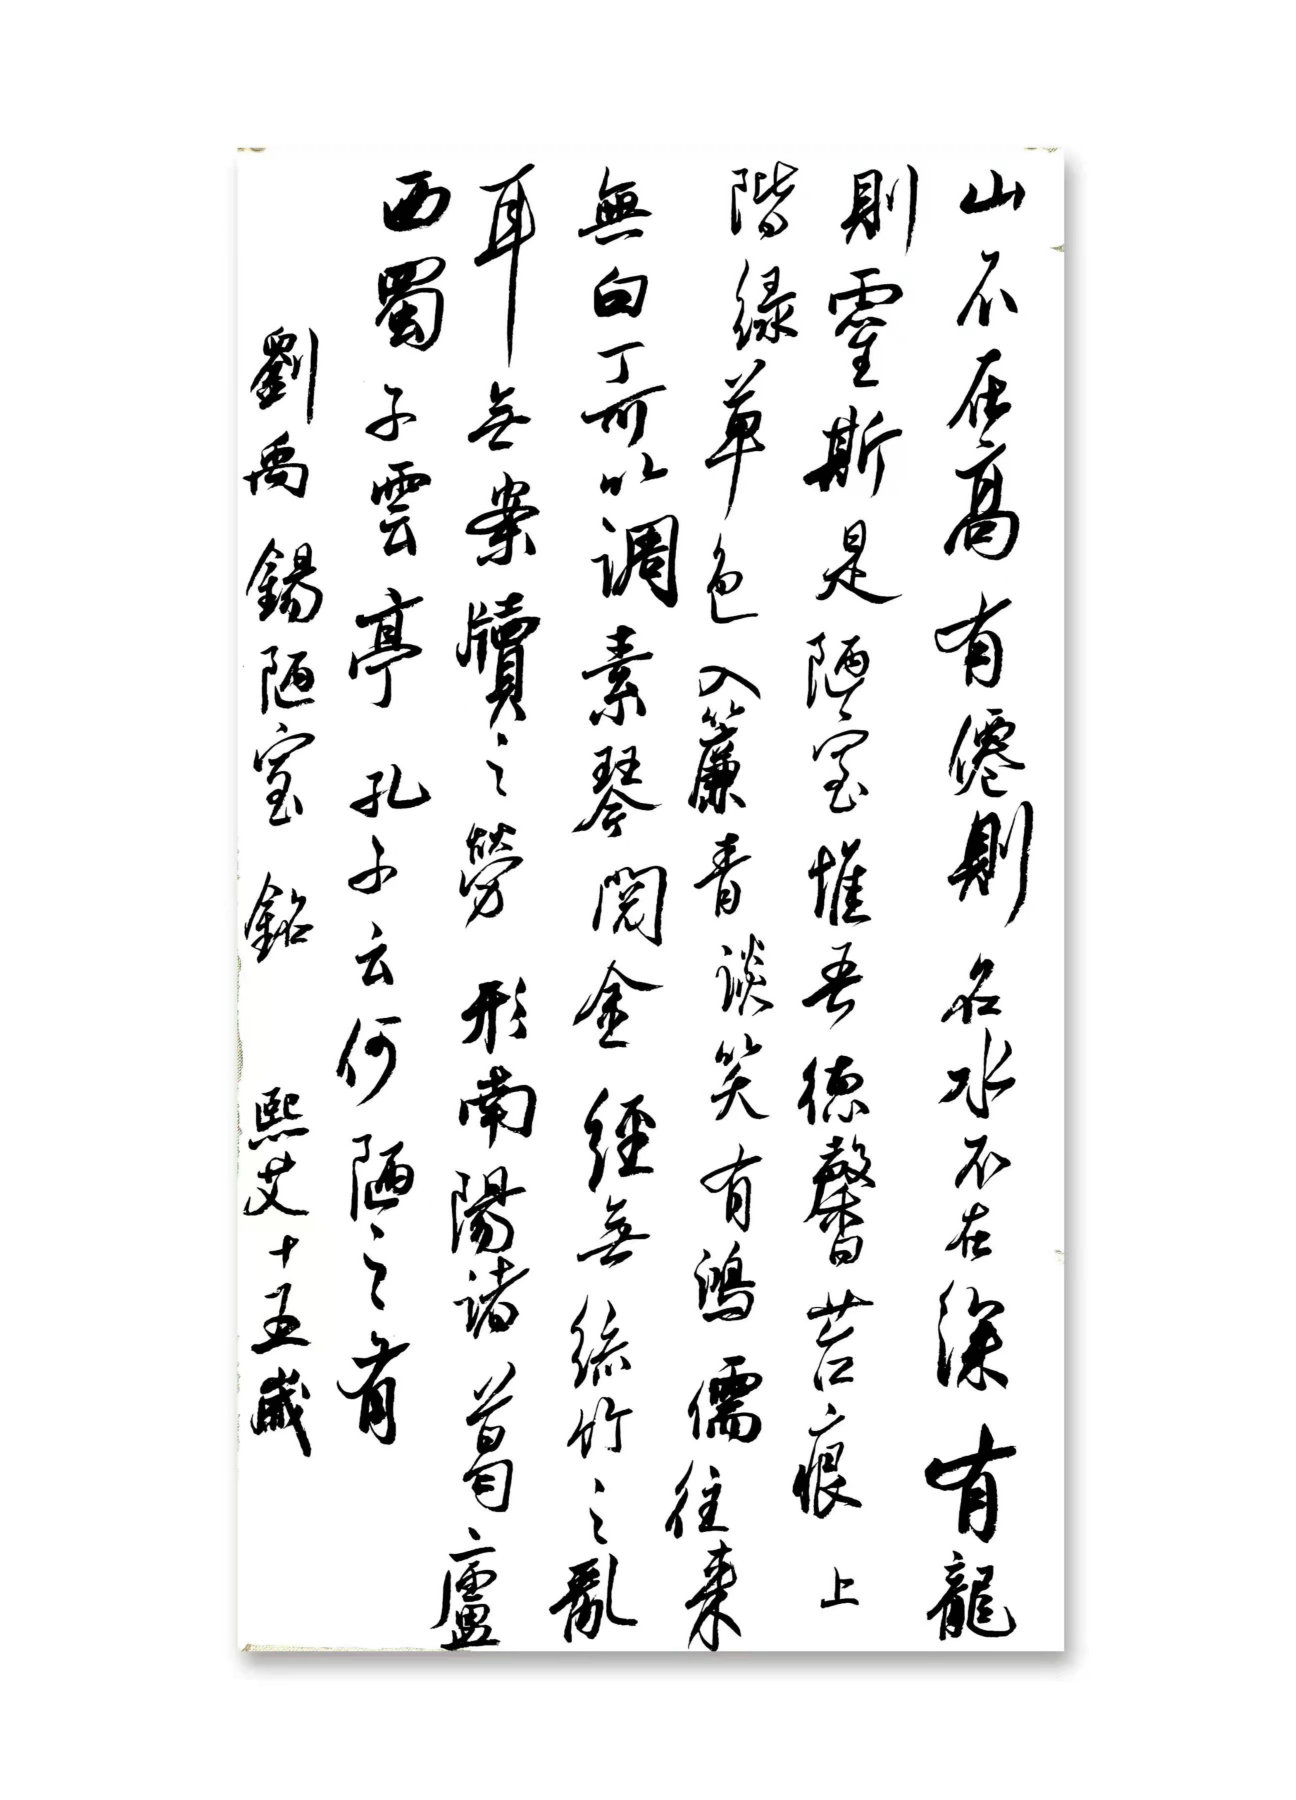 山不在高有僊則名水不在深有龍
則靈斯是陋室惟吾德馨苔痕上
階緑草色入簾青談笑有鴻儒往來
無白丁可以調素琴閱金經無絲竹之亂
耳無案牘之勞形南陽諸葛廬
西蜀子雲亭孔子云何陋之有
劉禹錫陋室銘 熙艾十五歲